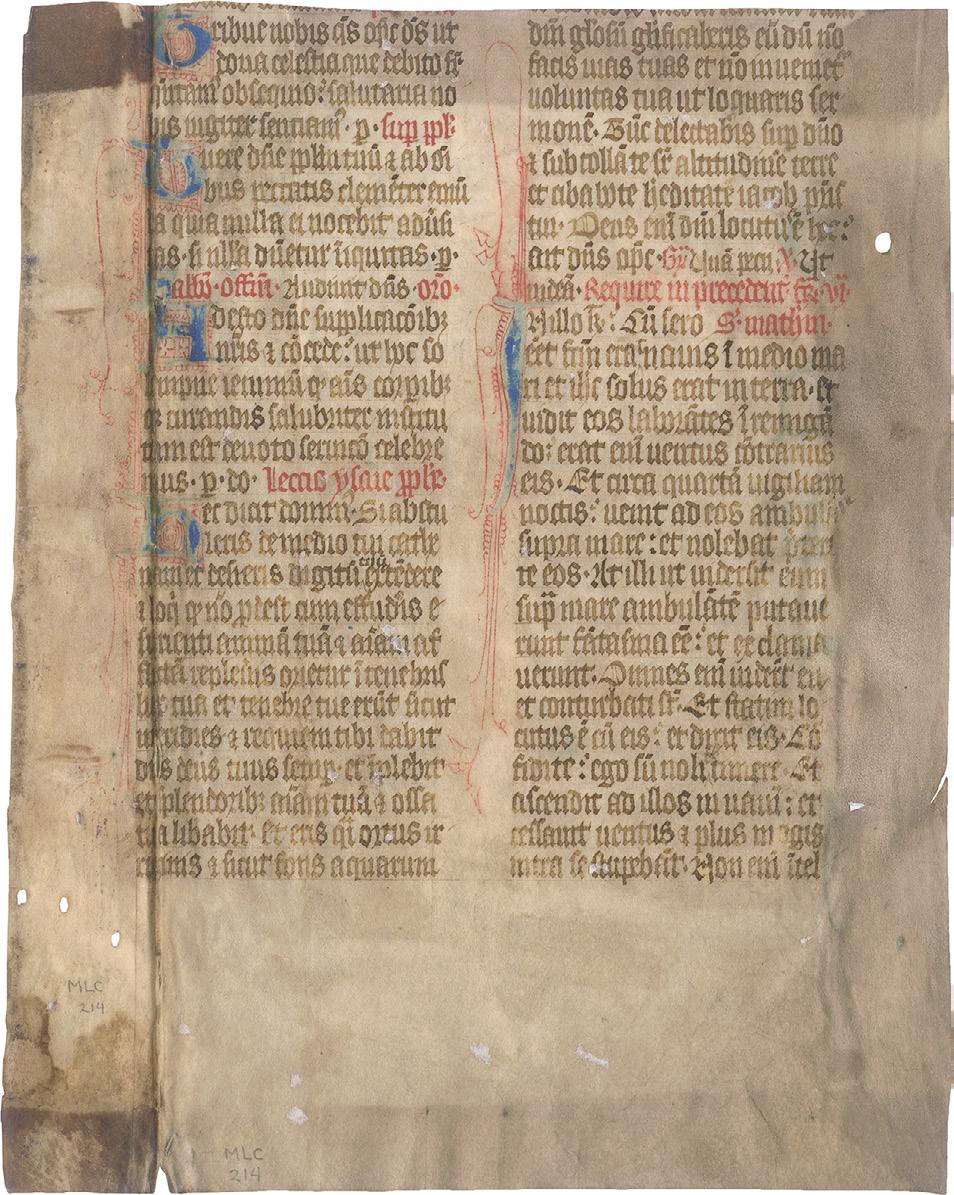 ribue nobis q̄s om̄ps d̄s ut
dona celestia que debito fre
q̄ntam᷒ obsequio: salutaria no
bis iugiter sentiam᷒ · p · sup̄ pp̄l̄
uere dn̄e pp̄lm tuū ⁊ ab oī
bus peccatis clemēter emū
a quia nulla ei nocebit aduersi
as · si nulla dn̄etur iniquitas · p̄ ·
Sabb̄o · offm̄ · Audiuit dn̄s · or̄o ·
Adesto dn̄e supplicacōib;
nr̄is ⁊ cōcede: ut hoc so
lempne ieiuniū q̄ aīs corpib;
q̨ curandis salubriter institu
tum est deuoto seruicō celebre
mus · p̄ · do · Lectio ysaie pp̄h̄e ·
Hec dicit domin᷒ · Si abstu
leris de medio tui cathe
nam et desieris digitū extēdere
⁊ loq̄ q̄ nō p̄dest cum effuderis e
surienti animā tuā ⁊ aīam af
flictā repleueris orietur ī tenebris
lux tua et tenebre tue erūt sicut
meridies ⁊ requiem tibi dabit
dn̄s deus tuus semp̄ · et īplebit
splendorib; aīam tuā ⁊ ossa
tua libabit · et eris q̄i ortus ir
riguus ⁊ sicut fons aquarum
dn̄i gl̄osū gl̄ificaberis eū dū nō
facis uias tuas et nō inuenit᷒
uoluntas tua ut loquaris ser
monē · Tūc delectab̄is sup̄ dn̄o
⁊ subtollā te sr̄ altitudinē terre
et cibabo te h̄editate iacob pr̄is
tui · Os enī dn̄i locutū ē hec:
ait dn̄s om̄ps · Gr̄ Unā peci · V̄ · Ut
uideā · Require in precedenti fr̄ · vi ·
In illo t̄: Cū sero S · mathm̄ ·
eēt factū erat nauis ī medio ma
ri et ih̄c solus erat in terra · Et
uidit eos laborātes ī remigā
do: erat enī uentus cōtrarius
eis · Et circa quartā uigiliam
noctis: uenit ad eos ambulās
supra mare: et uolebat preteri
re eos · At illi ut uiderūt eum
sup̄ mare ambulātē putaue
runt fātasma eē: et exclama
uerunt · Omnes enī uiderūt eū
et conturbati sūt · Et statim lo
cutus ē cū eis: et dixit eis · Cō
fidite: ego sū nolite timere · Et
ascendit ad illos in nauī: et
cessauit uentus ⁊ plus magis
intra se stupebāt · Non enī ītel
MLC
214
MLC
214